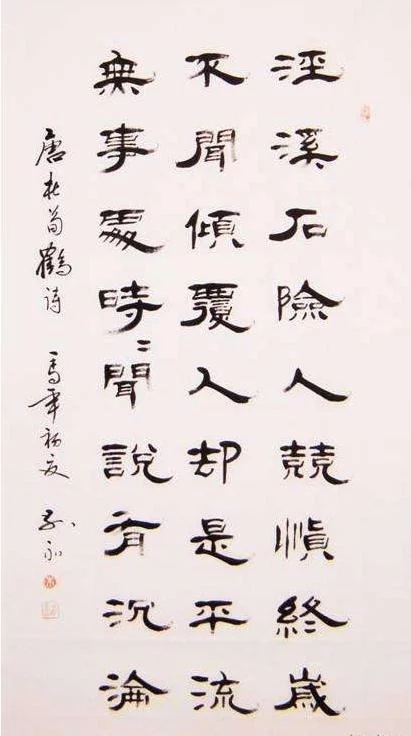 涇溪石險人兢慎終歲
不聞傾覆人却是平流
無事處時〻聞說有沉淪
唐杜荀鶴詩 馬年初夏